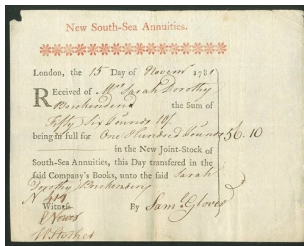 New South-Sea Annuities.
London, the 15 Day of Novem 178
Received of Mrs Sarah Dorothy
the Sum of
Fifty Six Pounds 10/
being in full for One Hundred Pounds 56.10
in the New Joint-Stock of
South-Sea Annuities, this Day transferred in the
said Company's Books, unto the said Sarah
Dorothy
Witness
By Saml Glover